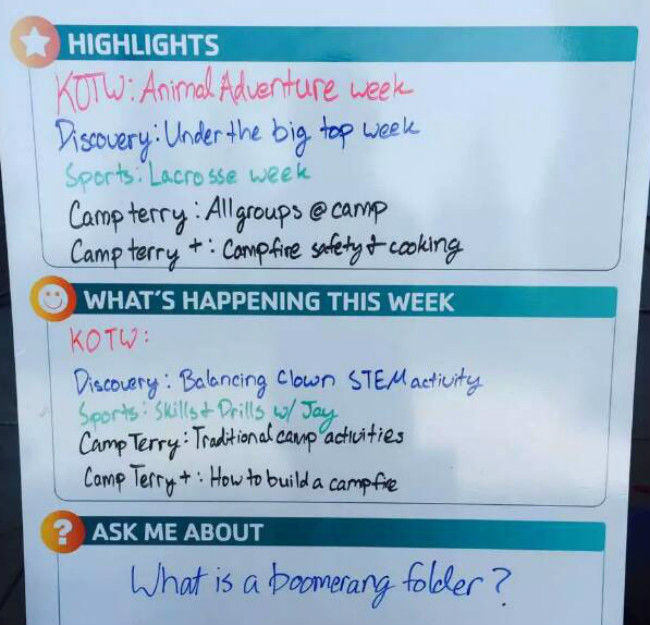 HIGHLIGHTS
KOTW: Animal Adventure week
Discovery: Under the big top week
Sports: Lacrosse week
Camp terry: All groups @ camp
Camp terry +: Campfire safety & cooking
WHAT'S HAPPENING THIS WEEK
KOTW:
Discovery: Balancing Clown STEM activity
Sports: Skills & Drills w/ Jay
Camp Terry: Traditional camp activities
Camp Terry +: How to build a campfire
? ASK ME ABOUT
What is a boomerang folder?